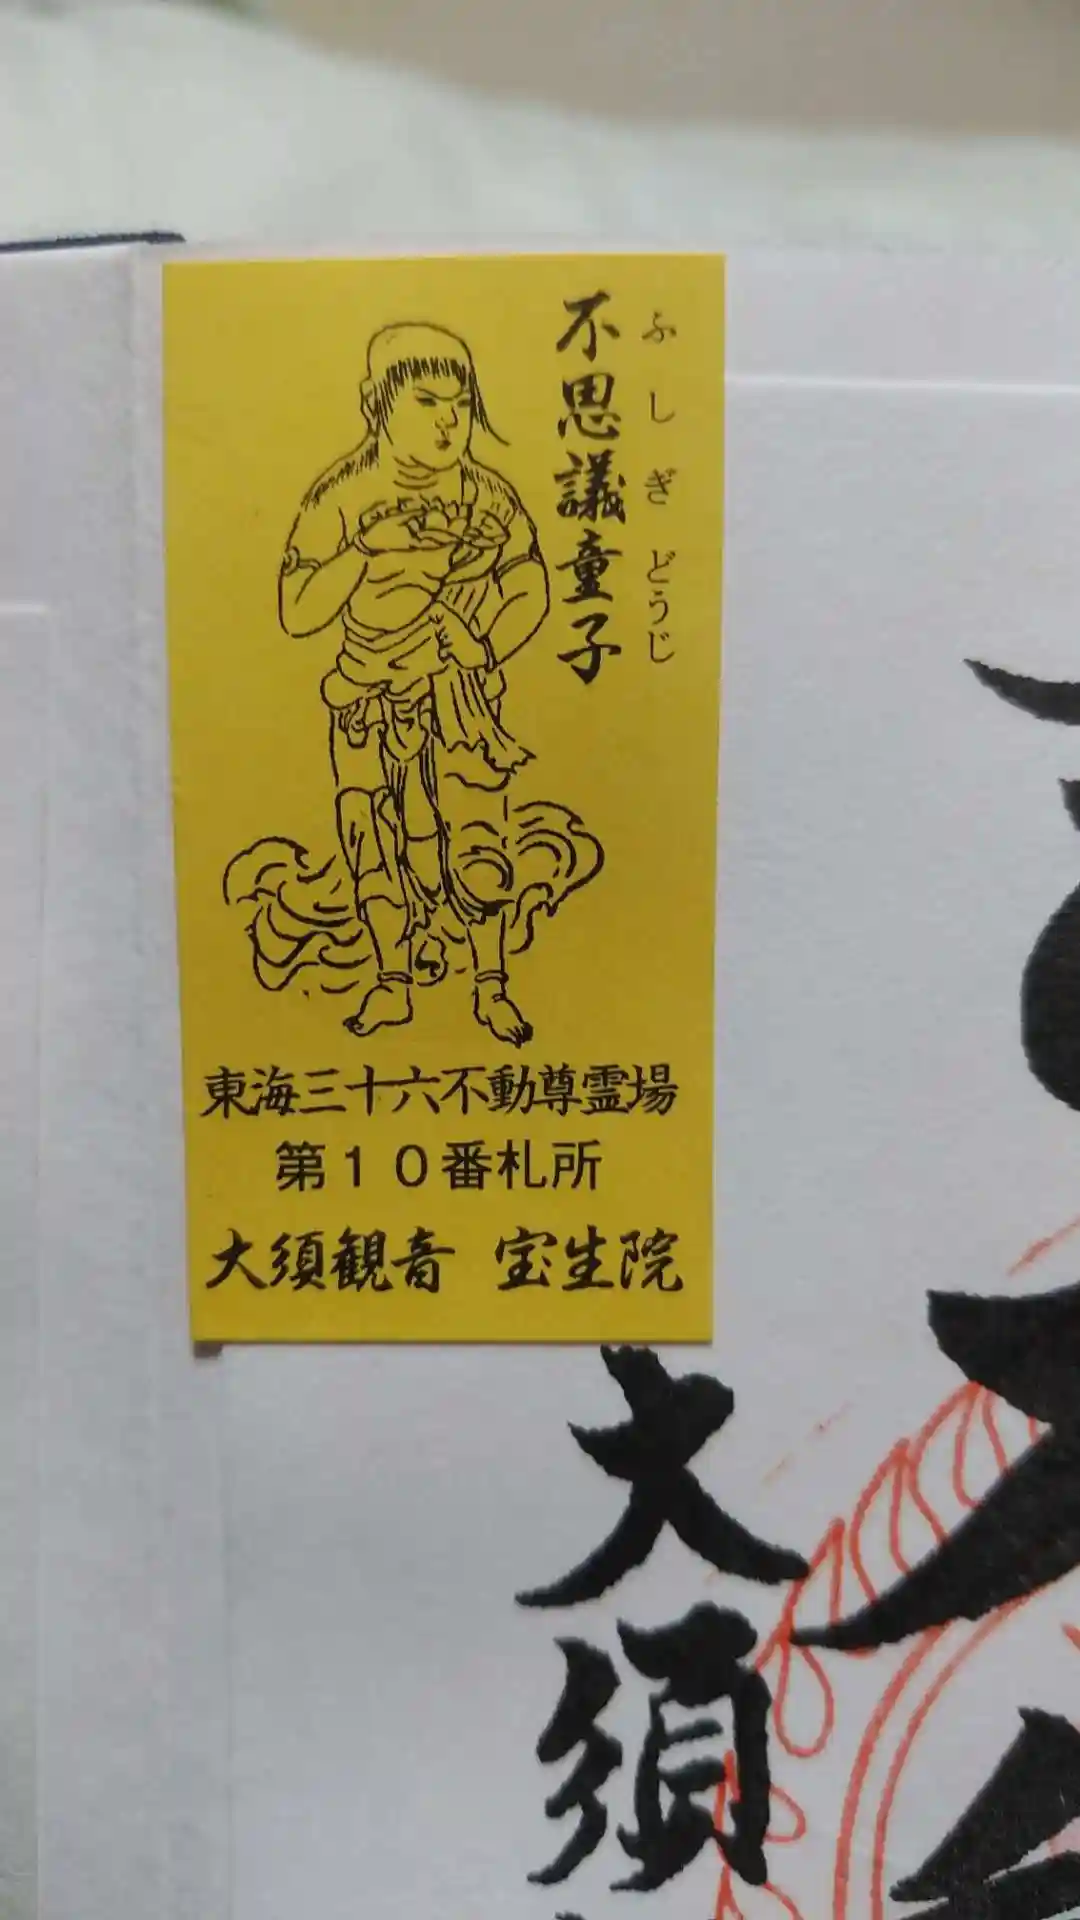 不思議童子
ふしぎどうじ
東海三十六不動尊霊場
第１０番札所
大須観音 宝生院
大須